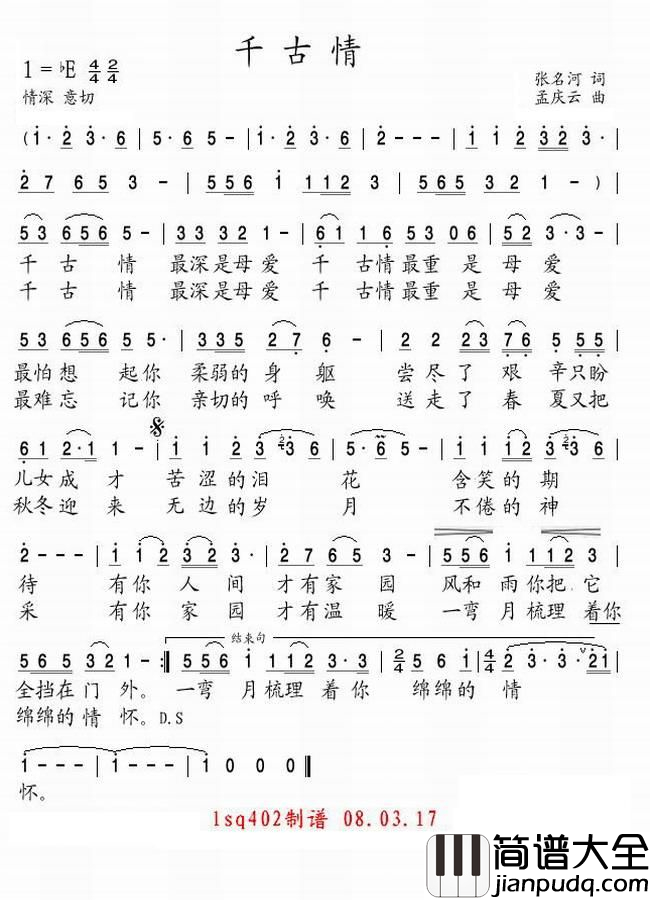 千古情
1=♭E 4/4 2/4
张名河 词
情深 意切
孟庆云 曲
(1·2 3·6 | 5·65- | 1·216 | 112323· |
27653- | 5561 | 1123· | 556321-) |
53 6565- | 33321- | 61 16 5306 | 523·3- |
千古情 最深是母爱 千古情最重是母爱
千古情 最深是母爱 千古情最重是母爱
53 65655· | 335 27 | 6·- | 22 2376 5555 |
最怕想起你 柔弱的身躯 尝尽了艰辛只盼
最难忘记你 亲切的呼唤 送走了春夏又把
儿女成才 苦涩的泪花 含笑的期
秋冬迎来 无边的岁月 不倦的神
2--- | 112323· | 276535 | 
待 有你人间才有家园 风和雨你把它
采 有你家园才有温暖 一弯月梳理着你
结束句
565 321- :‖ 5561 1123·3 | 2/4 561 | 4/4 23·3·21 |
全挡在门外。一弯月梳理着你 绵绵的情
绵绵的情怀。D.S
1--- | 1--- | 1000 ‖
怀。
lsq402制谱 08.03.17
简谱大全
jianpudq.com